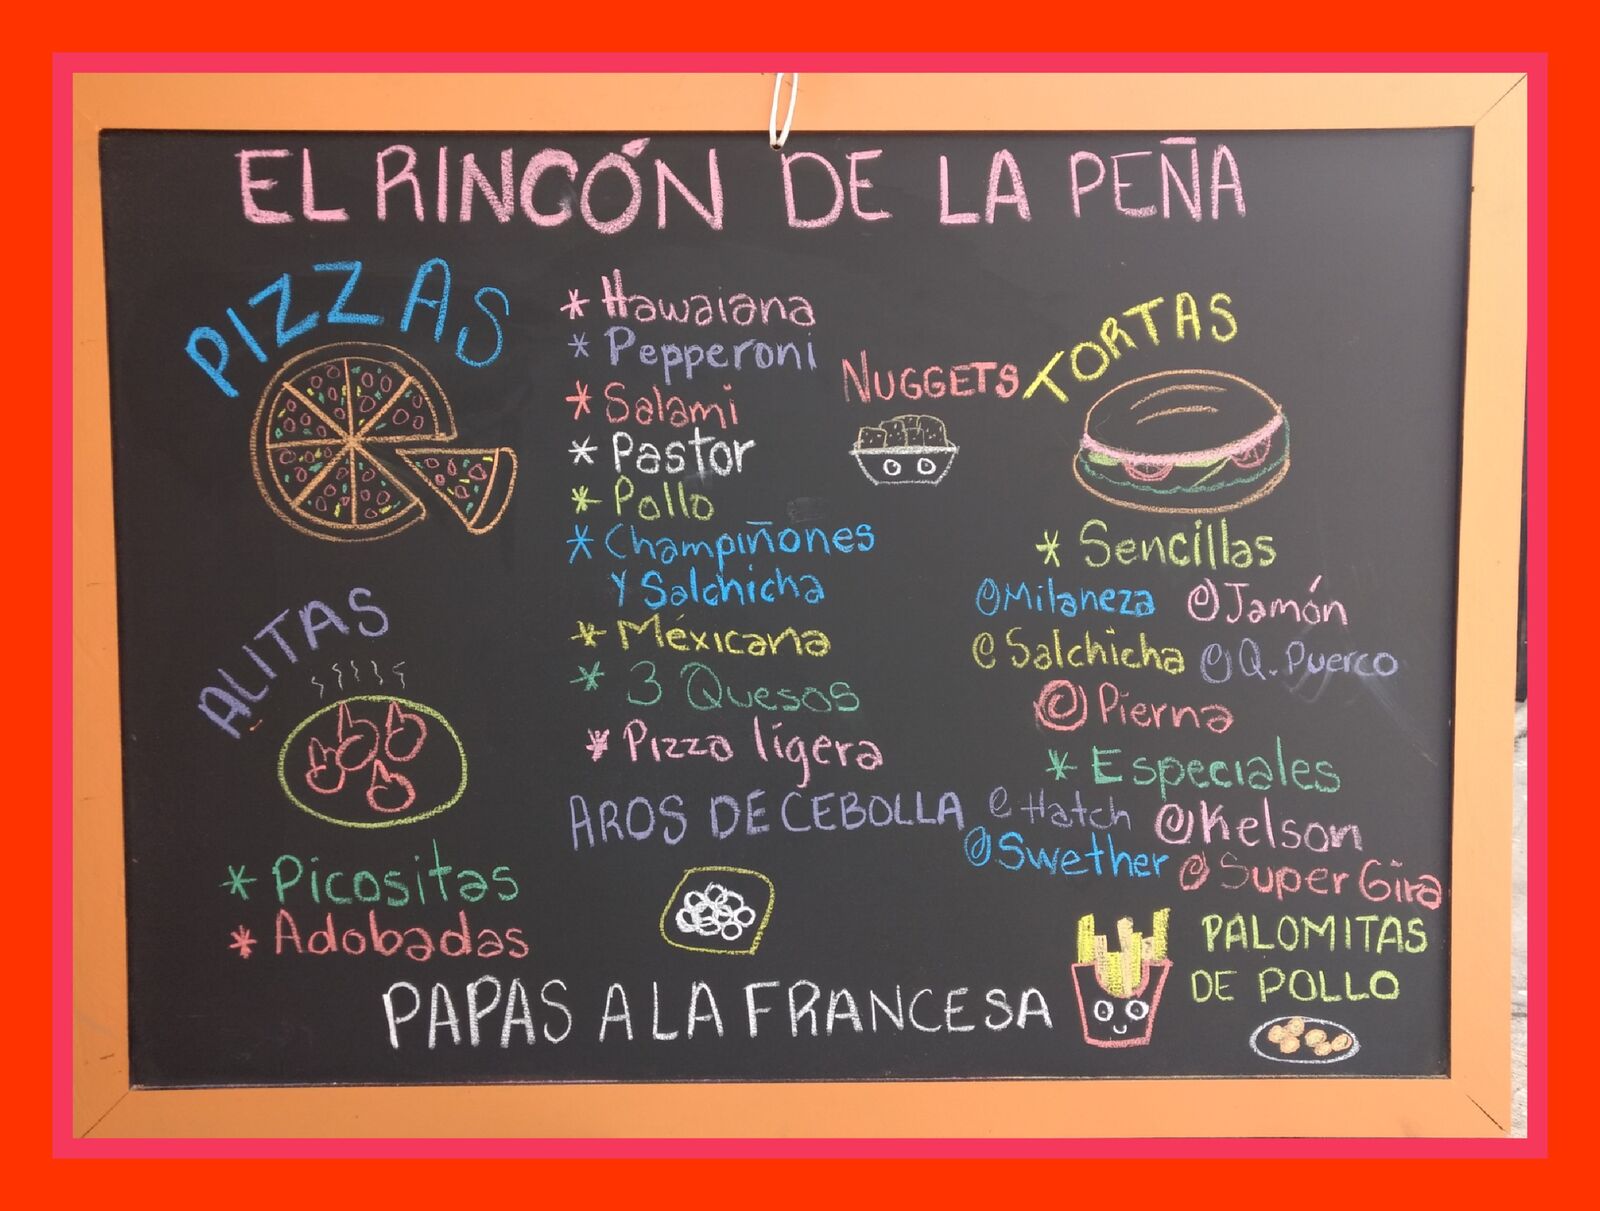 EL RINCÓN DE LA PEÑA
PIZZAS
* Hawaiana
* Pepperoni
* Salami
* Pastor
* Pollo
* Champiñones
Y Salchicha
* Méxicana
* 3 Quesos
* Pizza ligera
NUGGETS
TORTAS
* Sencillas
@Milaneza @Jamón
@Salchicha @Q. Puerco
@Pierna
* Especiales
@Hatch @Kelson
@Swether @Super Gira
ALITAS
* Picositas
* Adobadas
AROS DE CEBOLLA
PAPAS A LA FRANCESA
PALOMITAS
DE POLLO